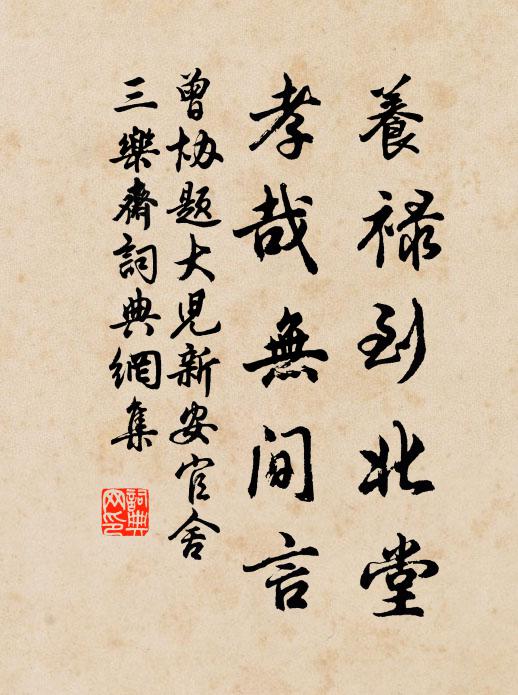 養祿到北堂
孝哉無間言
曾協題大兒新安官舍
三樂齋詞典網集
詞典網印